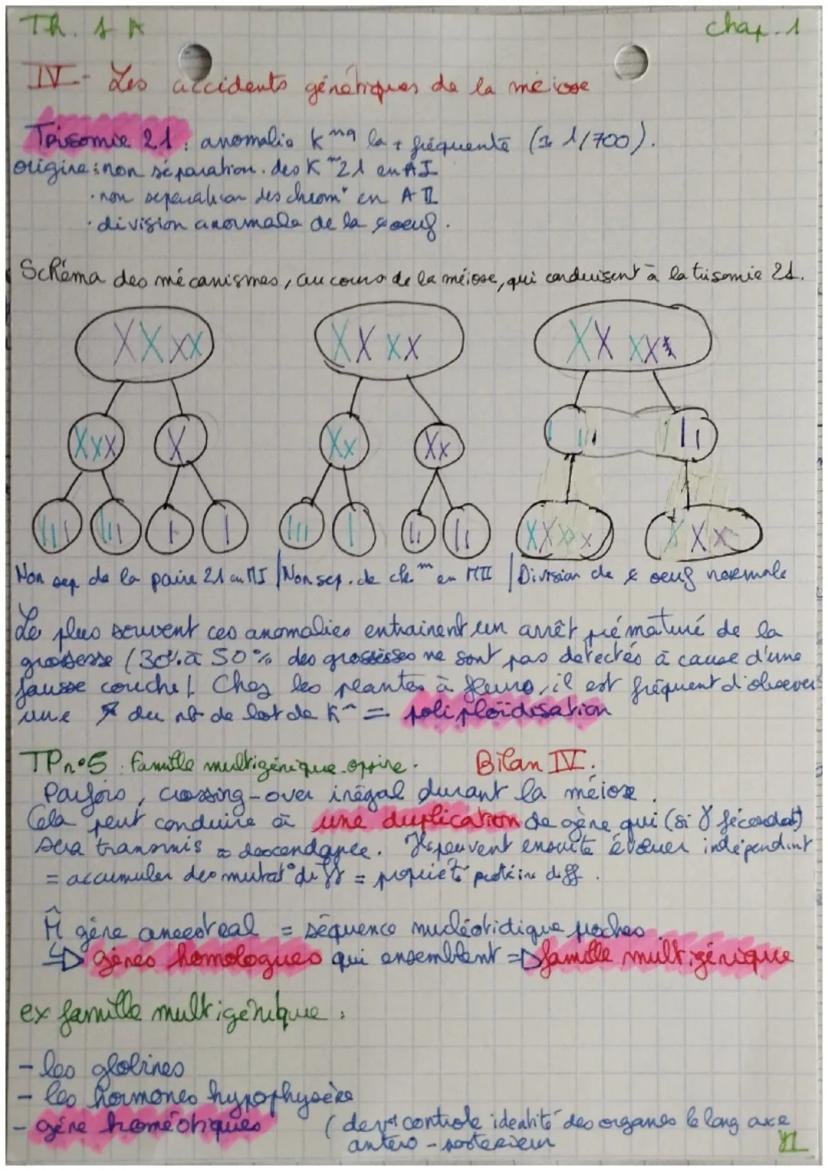 Th. 1 A
chap. 1
IV - Les accidents génétiques de la méiose
Trisomie 21 : anomalie K mq la + fréquente (≈ 1/700).
origine : non séparation des K m 21 en AI
· non separation des chrom° en A II
· division anormale de la oeuf.
Schéma des mécanismes, au cours de la méiose, qui conduisent à la trisomie 21.
Non sep de la paire 21 en MI | Non sep. de ch. m en MII | Division de oeuf normale
Le plus souvent ces anomalies entrainent un arrêt prématuré de la
grossesse (30% à 50% des grossesses ne sont pas detectés à cause d'une
fausse couche). Chez les plantes à fleurs, il est fréquent d'observer
une ↗ du nb de lot de K m = poliploïdisation
TP n°5 : famille multigénique opsine. Bilan IV.
Parfois, crossing-over inégal durant la méiose.
Cela peut conduire à une duplication de gène qui (si γ fécondat°)
sera transmis à descendance. Ils peuvent ensuite évoluer indépendint
= accumuler des mutat° diff = propriété protéine diff.
M̂ gène ancestral = séquence nucléotidique poches
↳ gènes homologues qui ensemblent => famille multigénique
ex famille multigénique :
- les globines
- les hormones hypophysère
- gène homéotiques (devt controle identité des organes le long axe
antero-posterieur